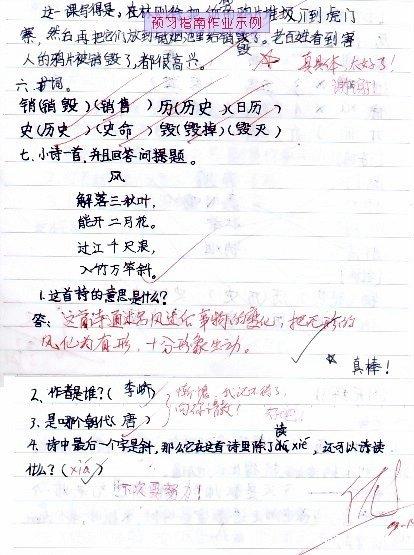 预习指南作业示例
这一课与得是，在林则徐把鸦片堆拔引到虎门
寨，然后再把它们放到销烟池里给销毁了。老百姓看到害
人的鸦片被销毁了，都很高兴。
真具体 太好了！
谢谢！
六、扩词。
销(销毁)(销售) 历(历史)(日历)
史(历史)(史命) 毁(毁掉)(毁灭)
七、小诗一首，并且回答问题。
风
解落三秋叶，
能开二月花。
过江千尺浪，
入竹万竿斜。
1.这首诗的意思是什么？
答：这首诗通过写风造后事物的变化，把无形的
风化为有形，十分形象生动。
真棒！
2、作者是谁？(李峤)
3、是哪个朝代(唐)
向你请教！
4、诗中最后一个字是斜，那么它在这首诗里除了读xié，还可以读
什么？(xiá)
下次要努力！
优